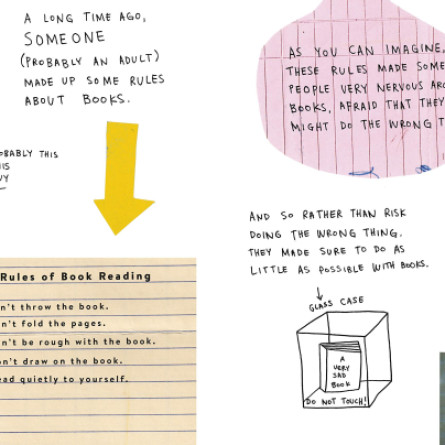 A LONG TIME AGO,
SOMEONE
(PROBABLY AN ADULT)
MADE UP SOME RULES
ABOUT BOOKS.
THIS
Rules of Book Reading
throw the book.
fold the pages.
be rough with the book.
draw on the book.
quietly to yourself.
AS YOU CAN IMAGINE,
THESE RULES MADE SOME
PEOPLE VERY NERVOUS
BOOKS, AFRAID THAT THEY
MIGHT DO THE WRONG
AND SO RATHER THAN RISK
DOING THE WRONG THING.
THEY MADE SURE TO DO AS
LITTLE AS POSSIBLE WITH BOOKS.
GLASS CASE
A
VERY
SAD
BOOK
DO NOT TOUCH!